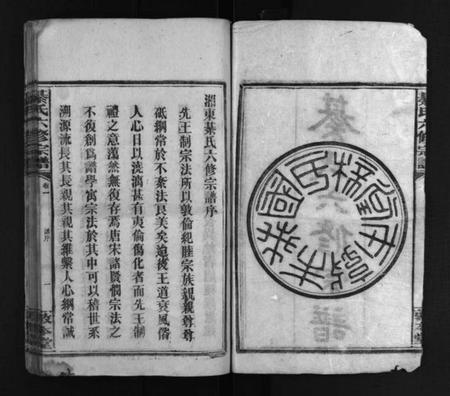 綦氏六修宗譜
湘東綦氏六修宗譜序
先王制宗法所以敦倫紀睦宗族親親尊尊
砥綱常於不紊法良美矣迨後王道衰風俗
人心日以澆漓甚有夷倫傷化者而先王制
禮之意蕩然無復存焉唐宋諸賢憫宗法之
不復創為譜學寓宗法於其中可以稽世系
溯源流長其長親其親其維繫人心綱常誠
綦氏六修宗譜
卷一
譜序
一
敦本堂